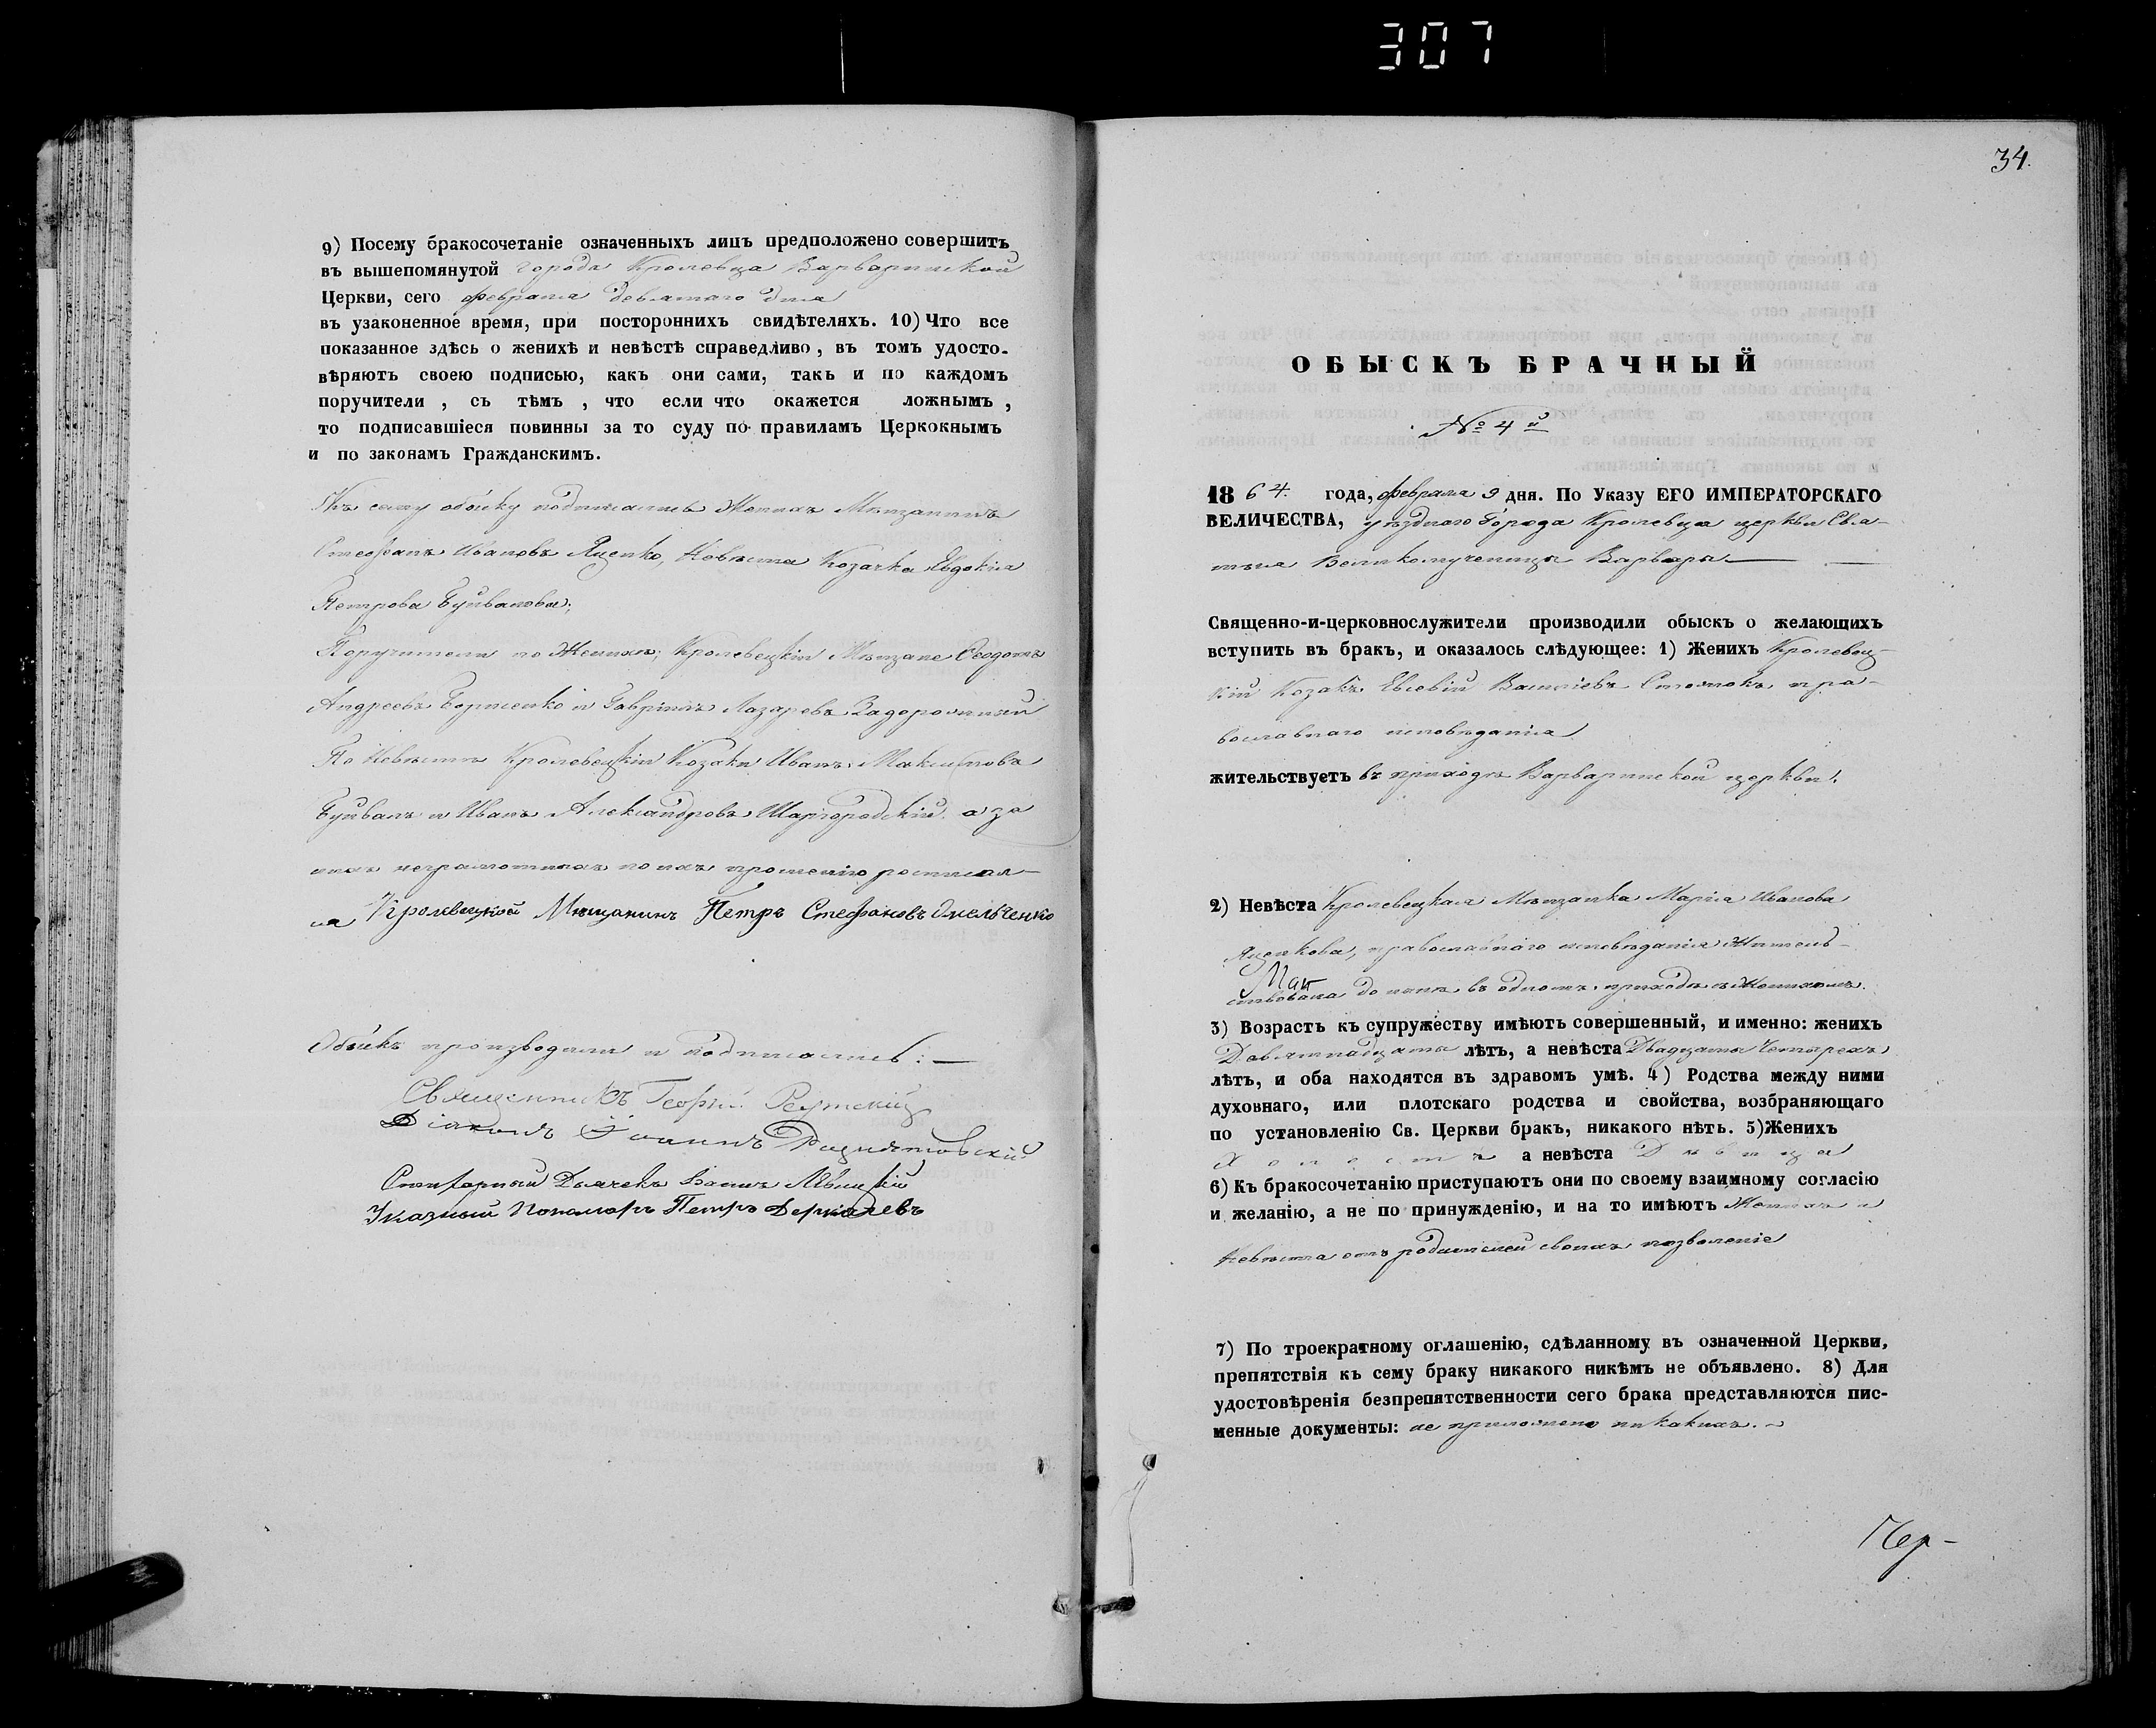 307
9) Посему бракосочетаніе означенныхъ лицъ предположено совершить
въ вышепомянутой города Кролевца Варваринской
Церкви, сего февраля девятаго дня
въ узаконенное время, при постороннихъ свидѣтеляхъ. 10) Что все
показанное здѣсь о женихѣ и невѣстѣ справедливо, въ томъ удосто-
вѣряютъ своею подписью, какъ они сами, такъ и по каждомъ
поручители, съ тѣмъ, что если что окажется ложнымъ,
то подписавшіеся повинны за то суду по правиламъ Церкокнымъ
и по законамъ Гражданскимъ.
Къ сему обыску подписались Женихъ Мѣщанинъ
Стефанъ Ивановъ Яценко, Невѣста Козачка Евдокія
Петрова Буйванова;
Поручители по Женихѣ; Кролевецкіи Мѣщане Феодотъ
Андреевъ и Гавріилъ Лазаревъ Задорожный
По Невѣстѣ Кролевецкіи Козаки Иванъ Максимовъ
Буйванъ и Иванъ Александровъ Шаргородскій, а за
ихъ неграмотныхъ по ихъ прошенію росписал-
ся Кролевецкой Мѣщанинъ Петръ Стефановъ Омельченко
Обыскъ производили и подписались: —
Священникъ Георгій Реутскій
Діаконъ Іоаннъ
Дьячекъ Левицкій
Указный Пономарь Петръ Деркачевъ
34.
ОБЫСКЪ БРАЧНЫЙ
№ 4й
1864. года, февраля 9 дня. По Указу ЕГО ИМПЕРАТОРСКАГО
ВЕЛИЧЕСТВА, уѣзднаго Города Кролевца церкви Свя-
тыя Великомученицы Варвары —
Священно-и-церковнослужители производили обыскъ о желающихъ
вступить въ бракъ, и оказалось слѣдующее: 1) Женихъ Кролевец-
кій Козакъ Евсевій Васильевъ пра-
вославнаго исповѣданія
жительствуетъ въ приходѣ Варваринской церкви.
2) Невѣста Кролевецкая Мѣщанка Марія Иванова
Яценкова, православнаго исповѣданія Житель-
ствовала до нынѣ въ одномъ приходѣ съ Женихомъ.
3) Возрастъ къ супружеству имѣютъ совершенный, и именно: женихъ
Девятнадцать лѣтъ, а невѣста Двадцать Четырехъ
лѣтъ, и оба находятся въ здравомъ умѣ. 4) Родства между ними
духовнаго, или плотскаго родства и свойства, возбраняющаго
по установленію Св. Церкви бракъ, никакого нѣтъ. 5)Женихъ
Холостъ а невѣста Дѣвица
6) Къ бракосочетанію приступаютъ они по своему взаимному согласію
и желанію, а не по принужденію, и на то имѣютъ Женихъ и
Невѣста отъ родителей своихъ позволеніе
7) По троекратному оглашенію, сдѣланному въ означенной Церкви,
препятствія къ сему браку никакого никѣмъ не объявлено. 8) Для
удостовѣренія безпрепятственности сего брака представляются пис-
менные документы: не приложено никакихъ.